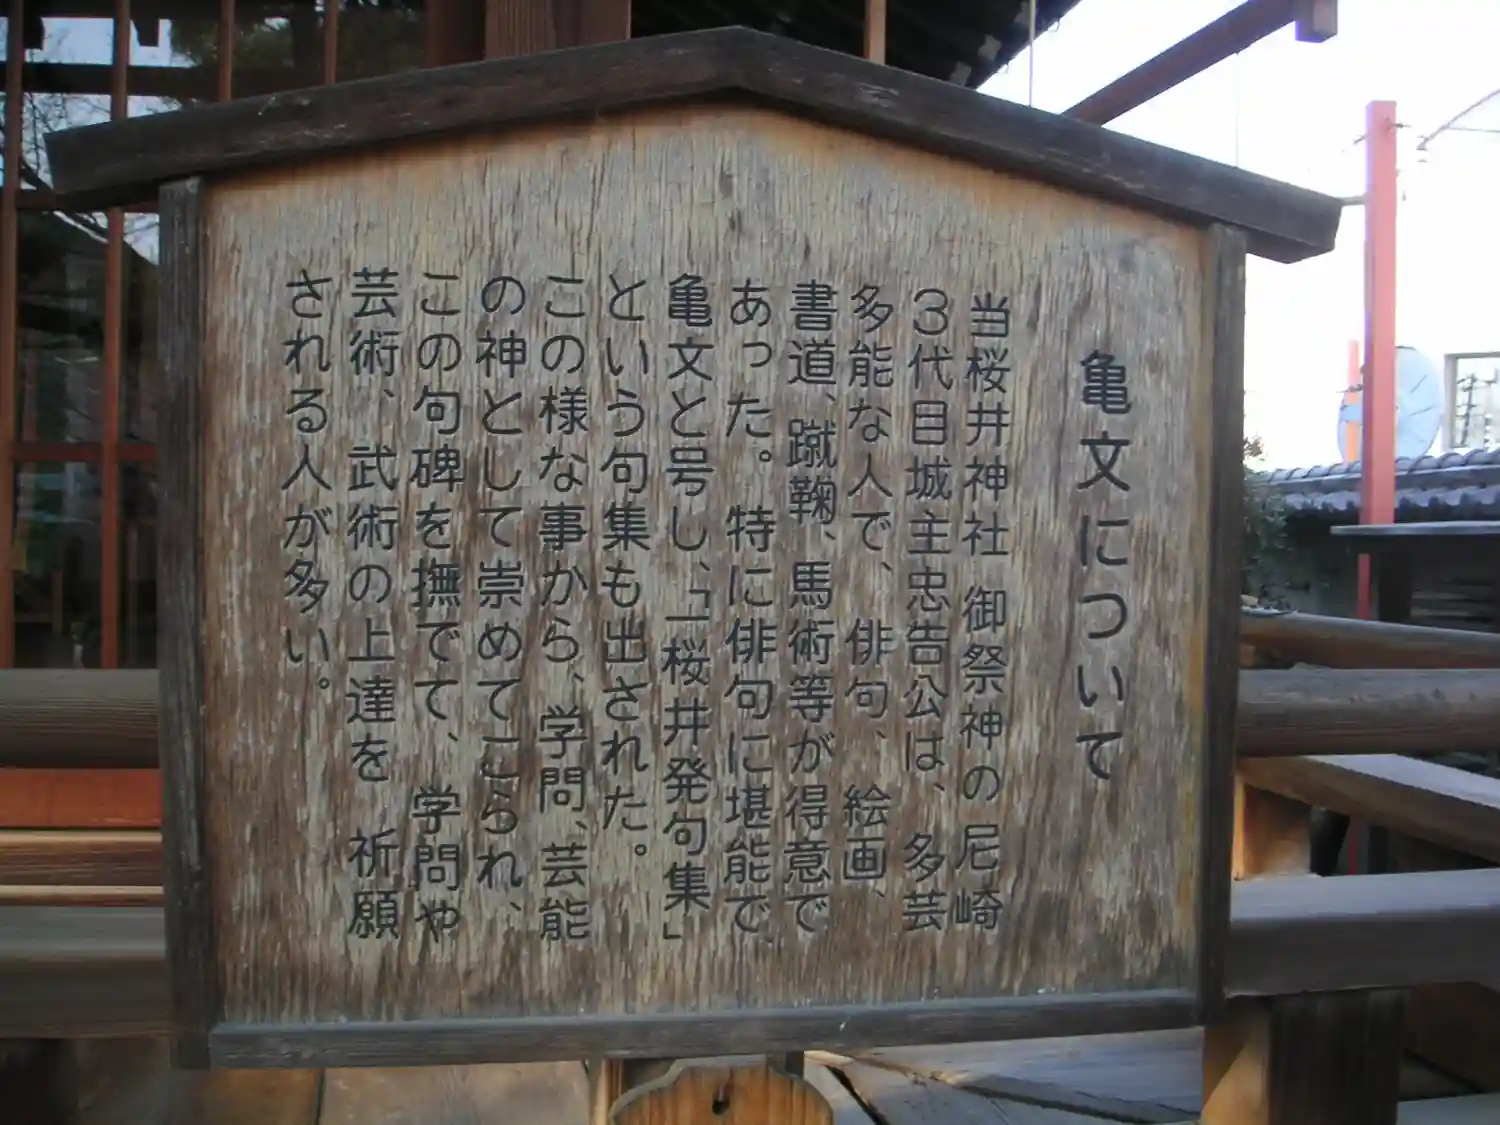 亀文について
当桜井神社 御祭神の尼崎
3代目城主忠告公は、多芸
多能な人で、俳句、絵画、
書道、蹴鞠、馬術等が得意で
あった。特に俳句に堪能で
亀文と号し、「桜井発句集」
という句集も出された。
この様な事から、学問、芸能
の神として崇めてこられ、
この句碑を撫でて、学問や
芸術、武術の上達を 祈願
される人が多い。